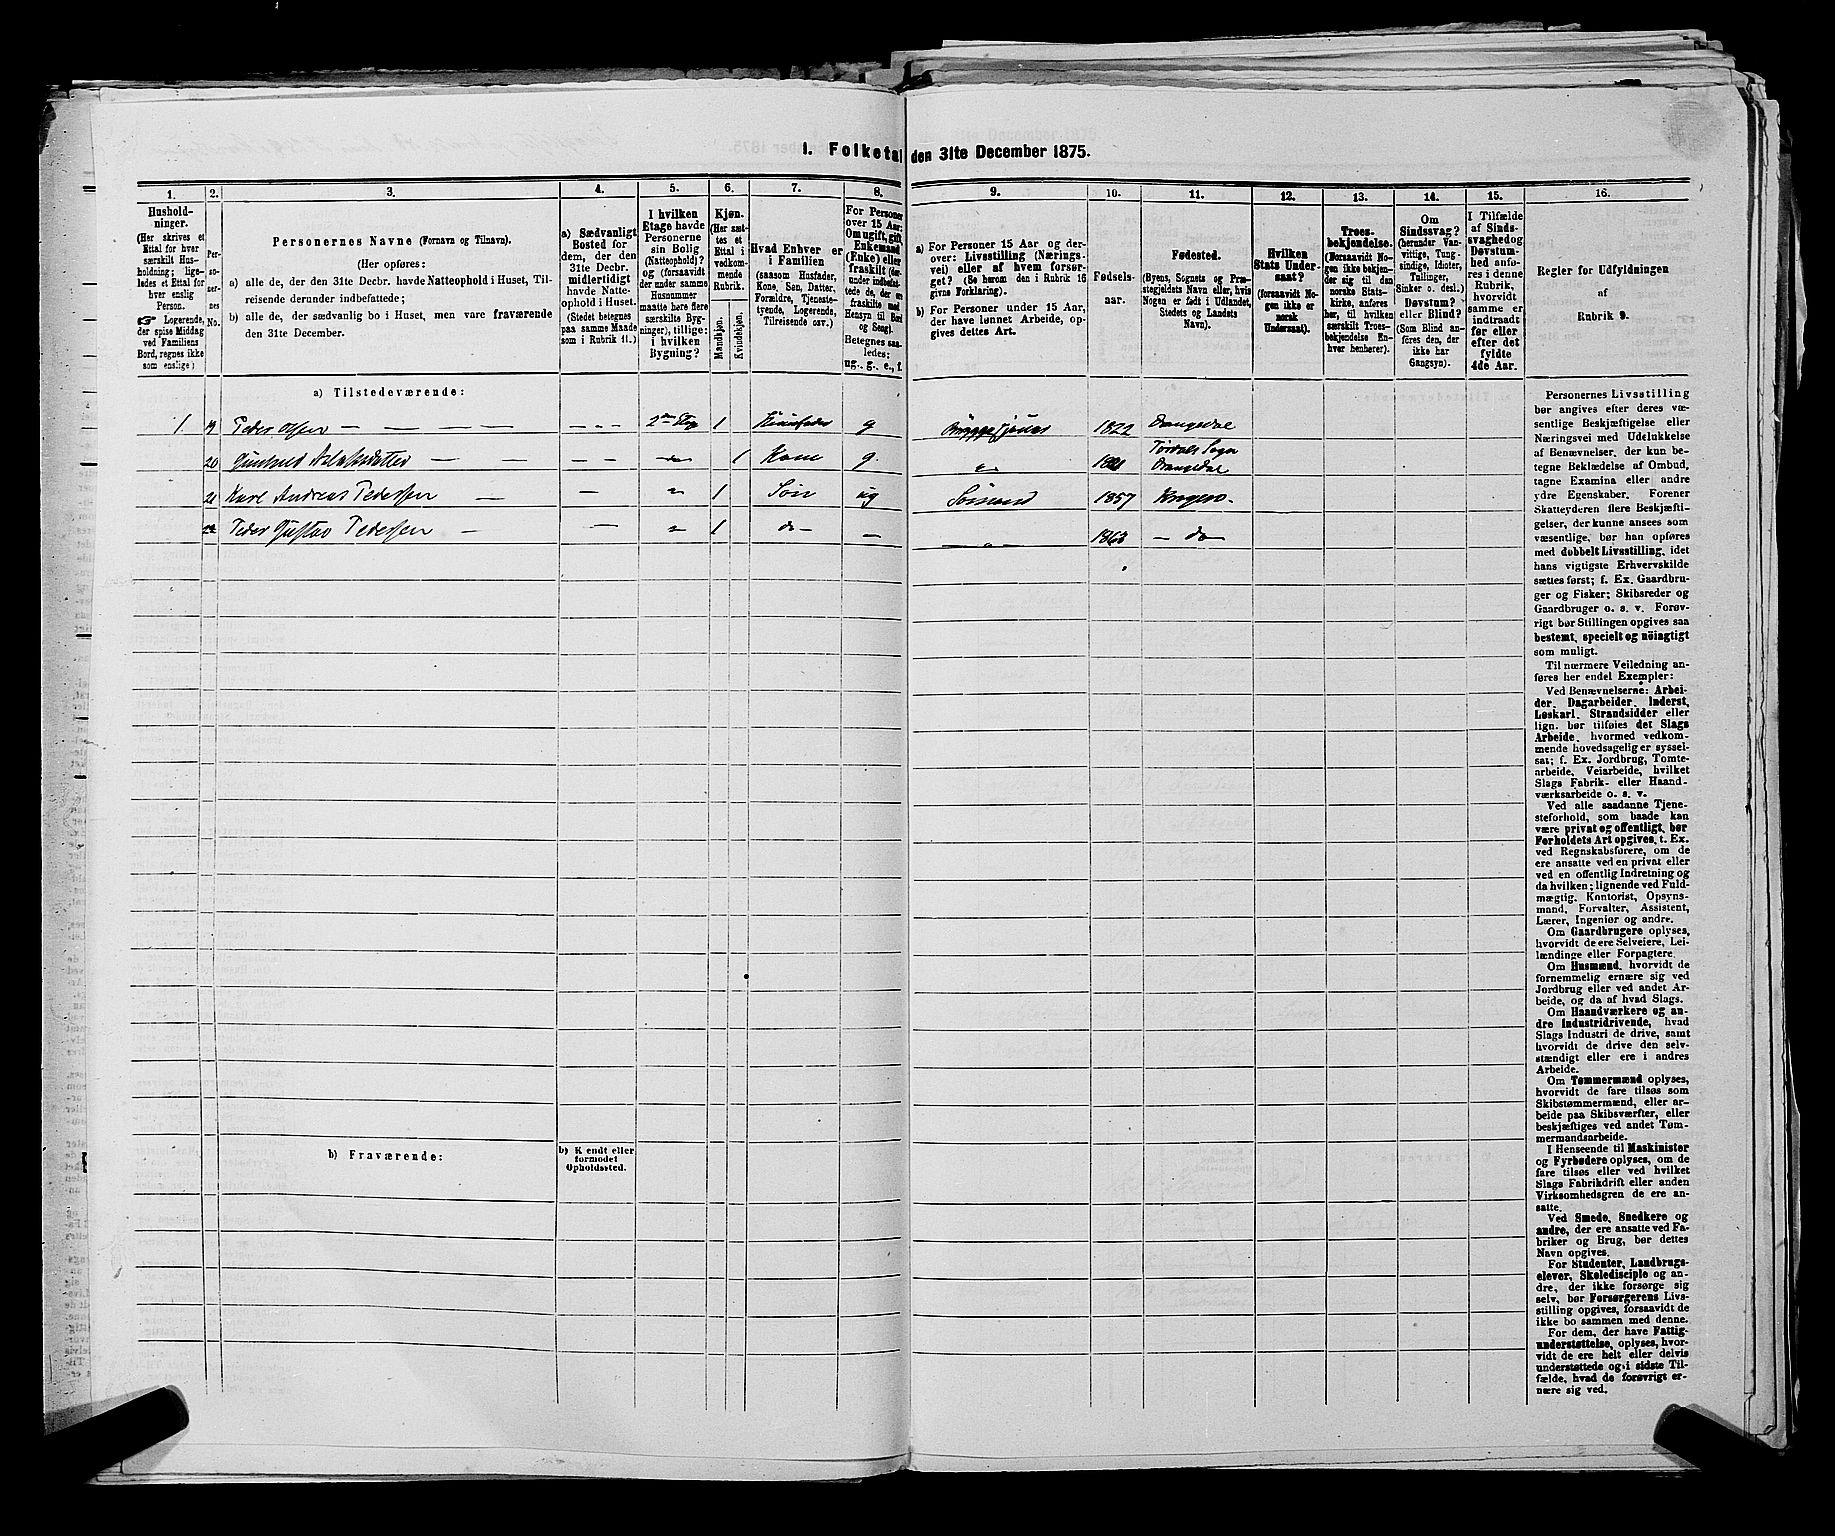 1. Folketal den 31te December 1875.
1.
Hushold-
ninger.
(Her skrives et
Ettal for hver
særskilt Hus-
holdning; lige-
ledes et Ettal for
hver enslig
Person.
☞ Logerende,
der spise Middag
ved Familiens
Bord, regnes ikke
som enslige)
2.
Per-
so-
ner-
nes
No.
3.
Personernes Navne (Fornavn og Tilnavn).
(Her opføres:
a) alle de, der den 31te Decbr. havde Natteophold i Huset, Til-
reisende derunder indbefattede;
b) alle de, der sædvanlig bo i Huset, men vare fraværende
den 31te December.
4.
a) Sædvanligt
Bosted for
dem, der den
31te Decbr.
midlertidigt
havde Natte-
ophold i Huset.
(Stedet betegnes
paa samme Maade
som i Rubrik 11.)
5.
I hvilken
Etage havde
Personerne
sin Bolig
(Natteophold)?
og (forsaavidt
der under samme
Husnummer
maatte høre flere
særskilte Byg-
ninger), tillige:
i hvilken
Bygning?
6.
Kjøn.
(Her sæt-
tes et
Ettal i
vedkom-
mende
Rubrik.
Mandkjøn.
Kvindekjøn.
7.
Hvad Enhver er
i Familien
(saasom Husfader,
Kone, Søn, Datter,
Forældre, Tjeneste-
tyende, Logerende,
Tilreisende osv.)
8.
For Personer
over 15 Aar:
Om ugift, gift,
Enkemand
(Enke) eller
fraskilt (der-
under indbefat-
tede de, der ere
fraskilte med
Hensyn til Bord
og Seng).
Betegnes saa-
ledes:
ug., g., e., f.
9.
a) For Personer 15 Aar og der-
over: Livsstilling (Nærings-
vei) eller af hvem forsør-
get? (Se herom den i Rubrik 16
givne Forklaring).
b) For Personer under 15 Aar,
der have lønnet Arbeide, op-
gives dettes Art.
10.
Fødsels-
aar.
11.
Fødested.
(Byens, Sognets og Præ-
stegjeldets Navn eller, hvis
Nogen er født i Udlandet,
Stedets og Landets
Navn).
12.
Hvilken
Stats Under-
saat?
(forsaavidt No-
gen ikke er
norsk
Undersaat).
13.
Troes-
bekjendelse.
(Forsaavidt No-
gen ikke bekjen-
der sig til den
norske Stats-
kirke, anføres
her, til hvilken
særskilt Troes-
bekjendelse En-
hver henhører).
14.
Om
Sindssvag?
(herunder Van-
vittige, Tung-
sindige, Idioter,
Tullinger,
Sinker o. desl.)
Døvstum?
eller Blind?
(Som Blind an-
føres den, der
ikke har
Gangsyn).
15.
I Tilfælde
af Sinds-
svaghed og
Døvstum-
hed anfø-
res i denne
Rubrik,
hvorvidt
samme er
indtraadt
før eller
efter det
fyldte
4de Aar.
16.
Regler for Udfyldningen
af
Rubrik 9.
a) Tilstedeværende:
1. 19 Peder Olsen — — — — - - - 2den Etag 1 Huusfader g Bryggesjouer 1822 Drangedal
20 Gunhild Aslaksdatter — — - - - do 1 Kone g. " Tørdals Sogn Drangedal
21 Karl Andreas Pedersen — — " 1 Søn ug Sømand 1857 Kragerø.
22 Peder Gustav Pedersen — — " 1 do — — " — — do
b) Fraværende:
b) Kjendt eller
formodet
Opholdssted.
Personernes Livsstilling
bør angives efter deres væ-
sentlige Beskjæftigelse eller
Næringsvei med Udelukkelse
af Benævnelser, der kun be-
tegne Beklædelse af Ombud,
tagne Examina eller andre
ydre Egenskaber. Forener
Skatteyderen flere Beskjæfti-
gelser, der kunne ansees som
væsentlige, bør han opføres
med dobbelt Livsstilling, idet
hans vigtigste Erhvervskilde
sættes først; f. Ex. Gaardbru-
ger og Fisker; Skibsreder og
Gaardbruger o. s. v. Forøv-
rigt bør Stillingen opgives saa
bestemt, specielt og nöiagtigt
som muligt.
Til nærmere Veiledning an-
føres her endel Exempler:
Ved Benævnelserne: Arbei-
der, Dagarbeider, Inderst,
Løskarl, Strandsidder eller
lign. bør tilføies det Slags
Arbeide, hvormed vedkom-
mende hovedsagelig er syssel-
sat; f. Ex. Jordbrug, Tomte-
arbeide, Veiarbeide, hvilket
Slags Fabrik- eller Haand-
værksarbeide o. s. v.
Ved alle saadanne Tjene-
steforhold, som baade kan
være privat og offentligt, bør
Forholdets Art opgives, t. Ex.
ved Regnskabsførere, om de
ere ansatte ved en privat eller
ved en offentlig Indretning og
da hvilken; lignende ved Fuld-
mægtig, Kontorist, Opsyns-
mand, Forvalter, Assistent,
Lærer, Ingeniør og andre.
Om Gaardbrugere oplyses,
hvorvidt de ere Selveiere, Lei-
lændinge eller Forpagtere.
Om Husmænd, hvorvidt de
fornemmelig ernære sig ved
Jordbrug eller ved andet Ar-
beide, og da af hvad Slags.
Om Haandværkere og an-
dre Industridrivende, hvad
Slags Industri de drive, samt
hvorvidt de drive den selv-
stændigt eller ere i andres
Arbeide.
Om Tømmermænd oplyses,
hvorvidt de fare tilsøs som
Skibstømmermænd, eller ar-
beide paa Skibsværfter, eller
beskjæftiges ved andet Tøm-
mermandsarbeide.
I Henseende til Maskinister
og Fyrbødere oplyses, om de
fare tilsøs eller ved hvilket
Slags Fabrikdrift eller anden
Virksomhedsgren de ere an-
satte.
Ved Smede, Snedkere og
andre, der ere ansatte ved Fa-
briker og Brug, bør dettes
Navn opgives.
For Studenter, Landbrugs-
elever, Skoledisciple og an-
dre, der ikke forsørge sig
selv, bør Forsørgerens Livs-
stilling opgives, forsaavidt de
ikke bo sammen med denne.
For dem, der have Fattig-
understøttelse, oplyses, hvor-
vidt de ere helt eller delvis
understøttede og i sidste Til-
fælde, hvad de forøvrigt er-
nære sig ved.